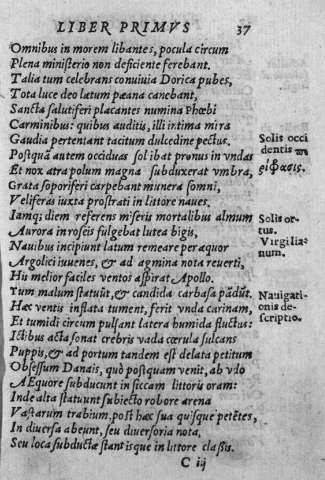 LIBER PRIMVS 37
Omnibus in morem libantes, pocula circum
Plena ministerio non deficiente ferebant.
Talia tum celebrans conuiuia Dorica pubes,
Tota luce deo latum pæana canebant,
Sancta salutiferi placantes numina Phœbi
Carminibus: quibus auditis, illi intima mira
Gaudia pertentant tacitum dulcedine pectus.
Postquā autem occiduas sol ibat pronus in vndas
Et nox atra polum magna subduxerat vmbra,
Grata soporiferi carpebant munera somni,
Veliferas iuxta prostrati in littore naues.
Iamq; diem referens miseris mortalibus almum
Aurora in roseis fulgebat lutea bigis,
Nauibus incipiunt latum remeare per æquor
Argolici iuuenes, & ad agmina nota reuerti,
His melior faciles ventos aspirat Apollo.
Tum malum statuūt, & candida carbasa pādūt.
Hæc ventis inflata tument, ferit vnda carinam,
Et tumidi circum pulsant latera humida fluctus:
Ictibus acta sonat crebris vada cœrula sulcans
Puppis, & ad portum tandem est delata petitum
Obsessum Danais, quò postquam venit, ab vdo
AEquore subducunt in siccam littoris oram:
Inde alta statuunt subiecto robore arena
Vastarum trabium, post hæc sua quisque petētes,
In diuersa abeunt, seu diuersoria nota,
Seu loca subductæ stantisque in littore classis.
C iij
Solis occi
dentis
ρίφασις.
Solis or-
tus.
Virgilia-
num.
Nauigati-
onis de-
scriptio.